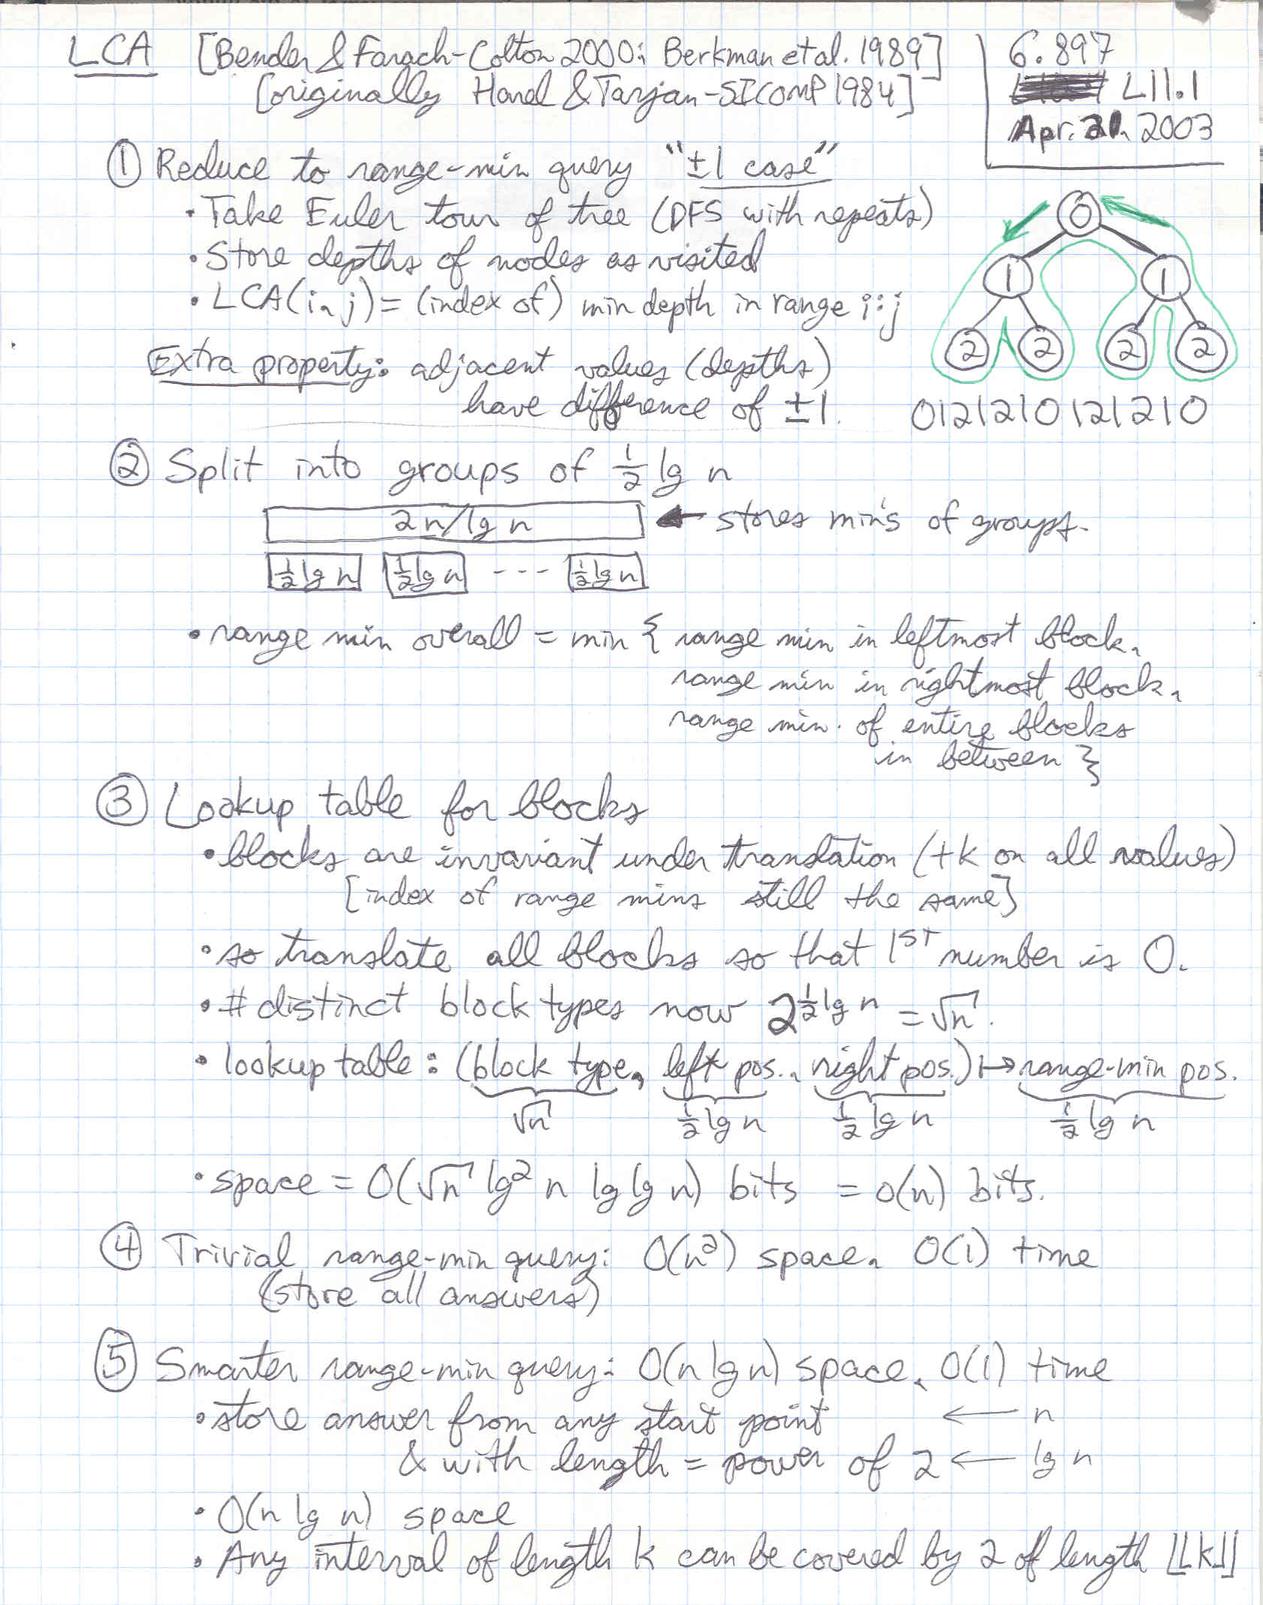 LCA [Bender & Farach-Colton 2000; Berkman et al. 1989]
[originally Harel & Tarjan-SICOMP 1984]
6.897
L11.1
Apr. 21, 2003
① Reduce to range-min query "±1 case"
• Take Euler tour of tree (DFS with repeats)
• Store depths of nodes as visited
• LCA(i, j) = (index of) min depth in range i:j
Extra property: adjacent values (depths)
have difference of ±1.
0
1 1
2 2 2 2
0121210121210
② Split into groups of ½ lg n
2n/lg n ← stores mins of groups.
½ lg n ½ lg n --- ½ lg n
• range min overall = min { range min in leftmost block,
range min in rightmost block,
range min. of entire blocks
in between }
③ Lookup table for blocks
• blocks are invariant under translation (+k on all values)
[index of range mins still the same]
• so translate all blocks so that 1ST number is 0.
• # distinct block types now 2^{½ lg n} = √n.
• lookup table: (block type, left pos., right pos.) ↦ range-min pos.
√n ½ lg n ½ lg n ½ lg n
• space = O(√n lg² n lg lg n) bits = o(n) bits.
④ Trivial range-min query: O(n²) space, O(1) time
(store all answers)
⑤ Smarter range-min query: O(n lg n) space, O(1) time
• store answer from any start point ← n
& with length = power of 2 ← lg n
• O(n lg n) space
• Any interval of length k can be covered by 2 of length ⌊⌊k⌋⌋